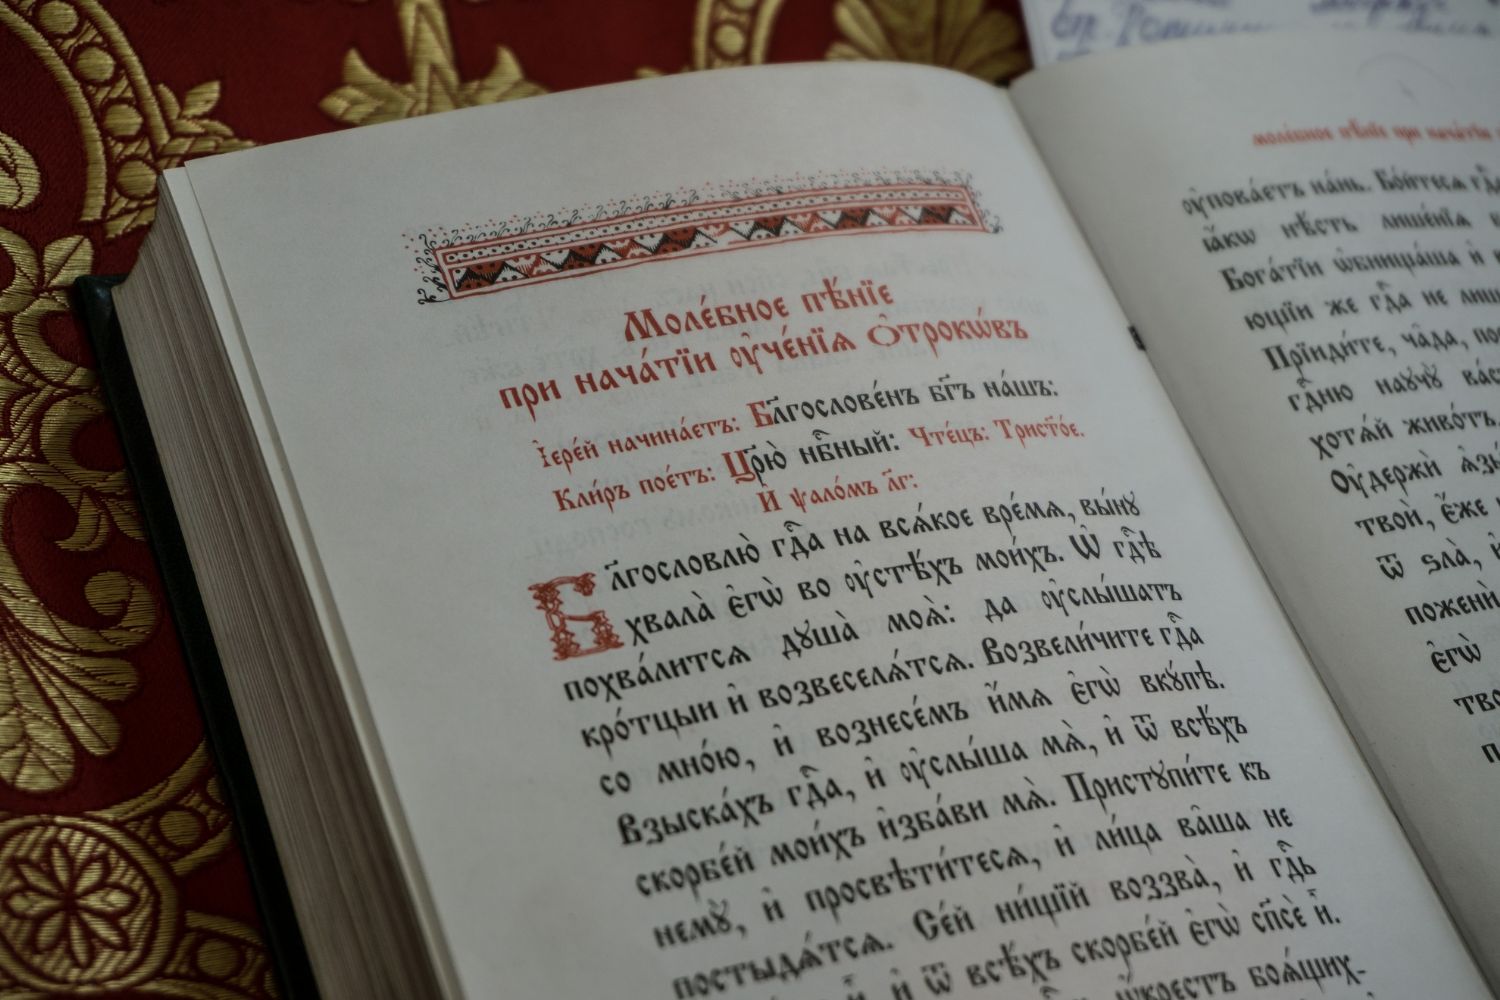 Моле́бное пѣ́нїе
при нача́тїи ᲂу҆че́нїѧ Ѻ҆трокѡ́въ
І҆ере́й начина́етъ: Бл҃гослове́нъ бг҃ъ на́шъ:
Кли́ръ пое́тъ: Цр҃ю̀ нбⷭ҇ный: Чте́цъ: Трист҃о́е.
И҆ ѱало́мъ л҃г:
Бл҃гословлю̀ гдⷭ҇а на всѧ́кое вре́мѧ, вы́нꙋ
хвала̀ є҆гѡ̀ во ᲂу҆стѣ́хъ мои́хъ. Ѡ҆ гдⷭ҇ѣ
похва́литсѧ дꙋша̀ моѧ̀: да ᲂу҆слы́шатъ
кро́тцыи и҆ возвеселѧ́тсѧ. Возвели́чите гдⷭ҇а
со мно́ю, и҆ вознесе́мъ и҆́мѧ є҆гѡ̀ вкꙋ́пѣ.
Взыска́хъ гдⷭ҇а, и҆ ᲂу҆слы́ша мѧ̀, и҆ ѿ всѣ́хъ
скорбе́й мои́хъ и҆зба́ви мѧ̀. Пристꙋпи́те къ
немꙋ̀, и҆ просвѣти́тесѧ, и҆ ли́ца ва̑ша не
постыдѧ́тсѧ. Се́й ни́щїй воззва̀, и҆ гдⷭ҇ь
и҆ ѿ всѣ́хъ скорбе́й є҆гѡ̀ сп҃сѐ и҆̀.
ѡ҆́крестъ боѧ́щих-
моле́бное пѣ́нїе при нача́тїи
ᲂу҆пова́етъ на́нь. Бо́йтесѧ гдⷭ҇а
ꙗ҆́кѡ нѣ́сть лише́нїѧ
Бога́тїи ѡ҆бнища́ша и҆
ющїи же гдⷭ҇а не лиш
Прїиди́те, ча̑да, по
гдⷭ҇ню наꙋчꙋ̀ ва́с
хотѧ́й живо́тъ,
Оу҆держѝ ѧ҆зы́
тво́й, є҆́же
ѿ ѕла̀, и҆
поженѝ
є҆гѡ̀
тво